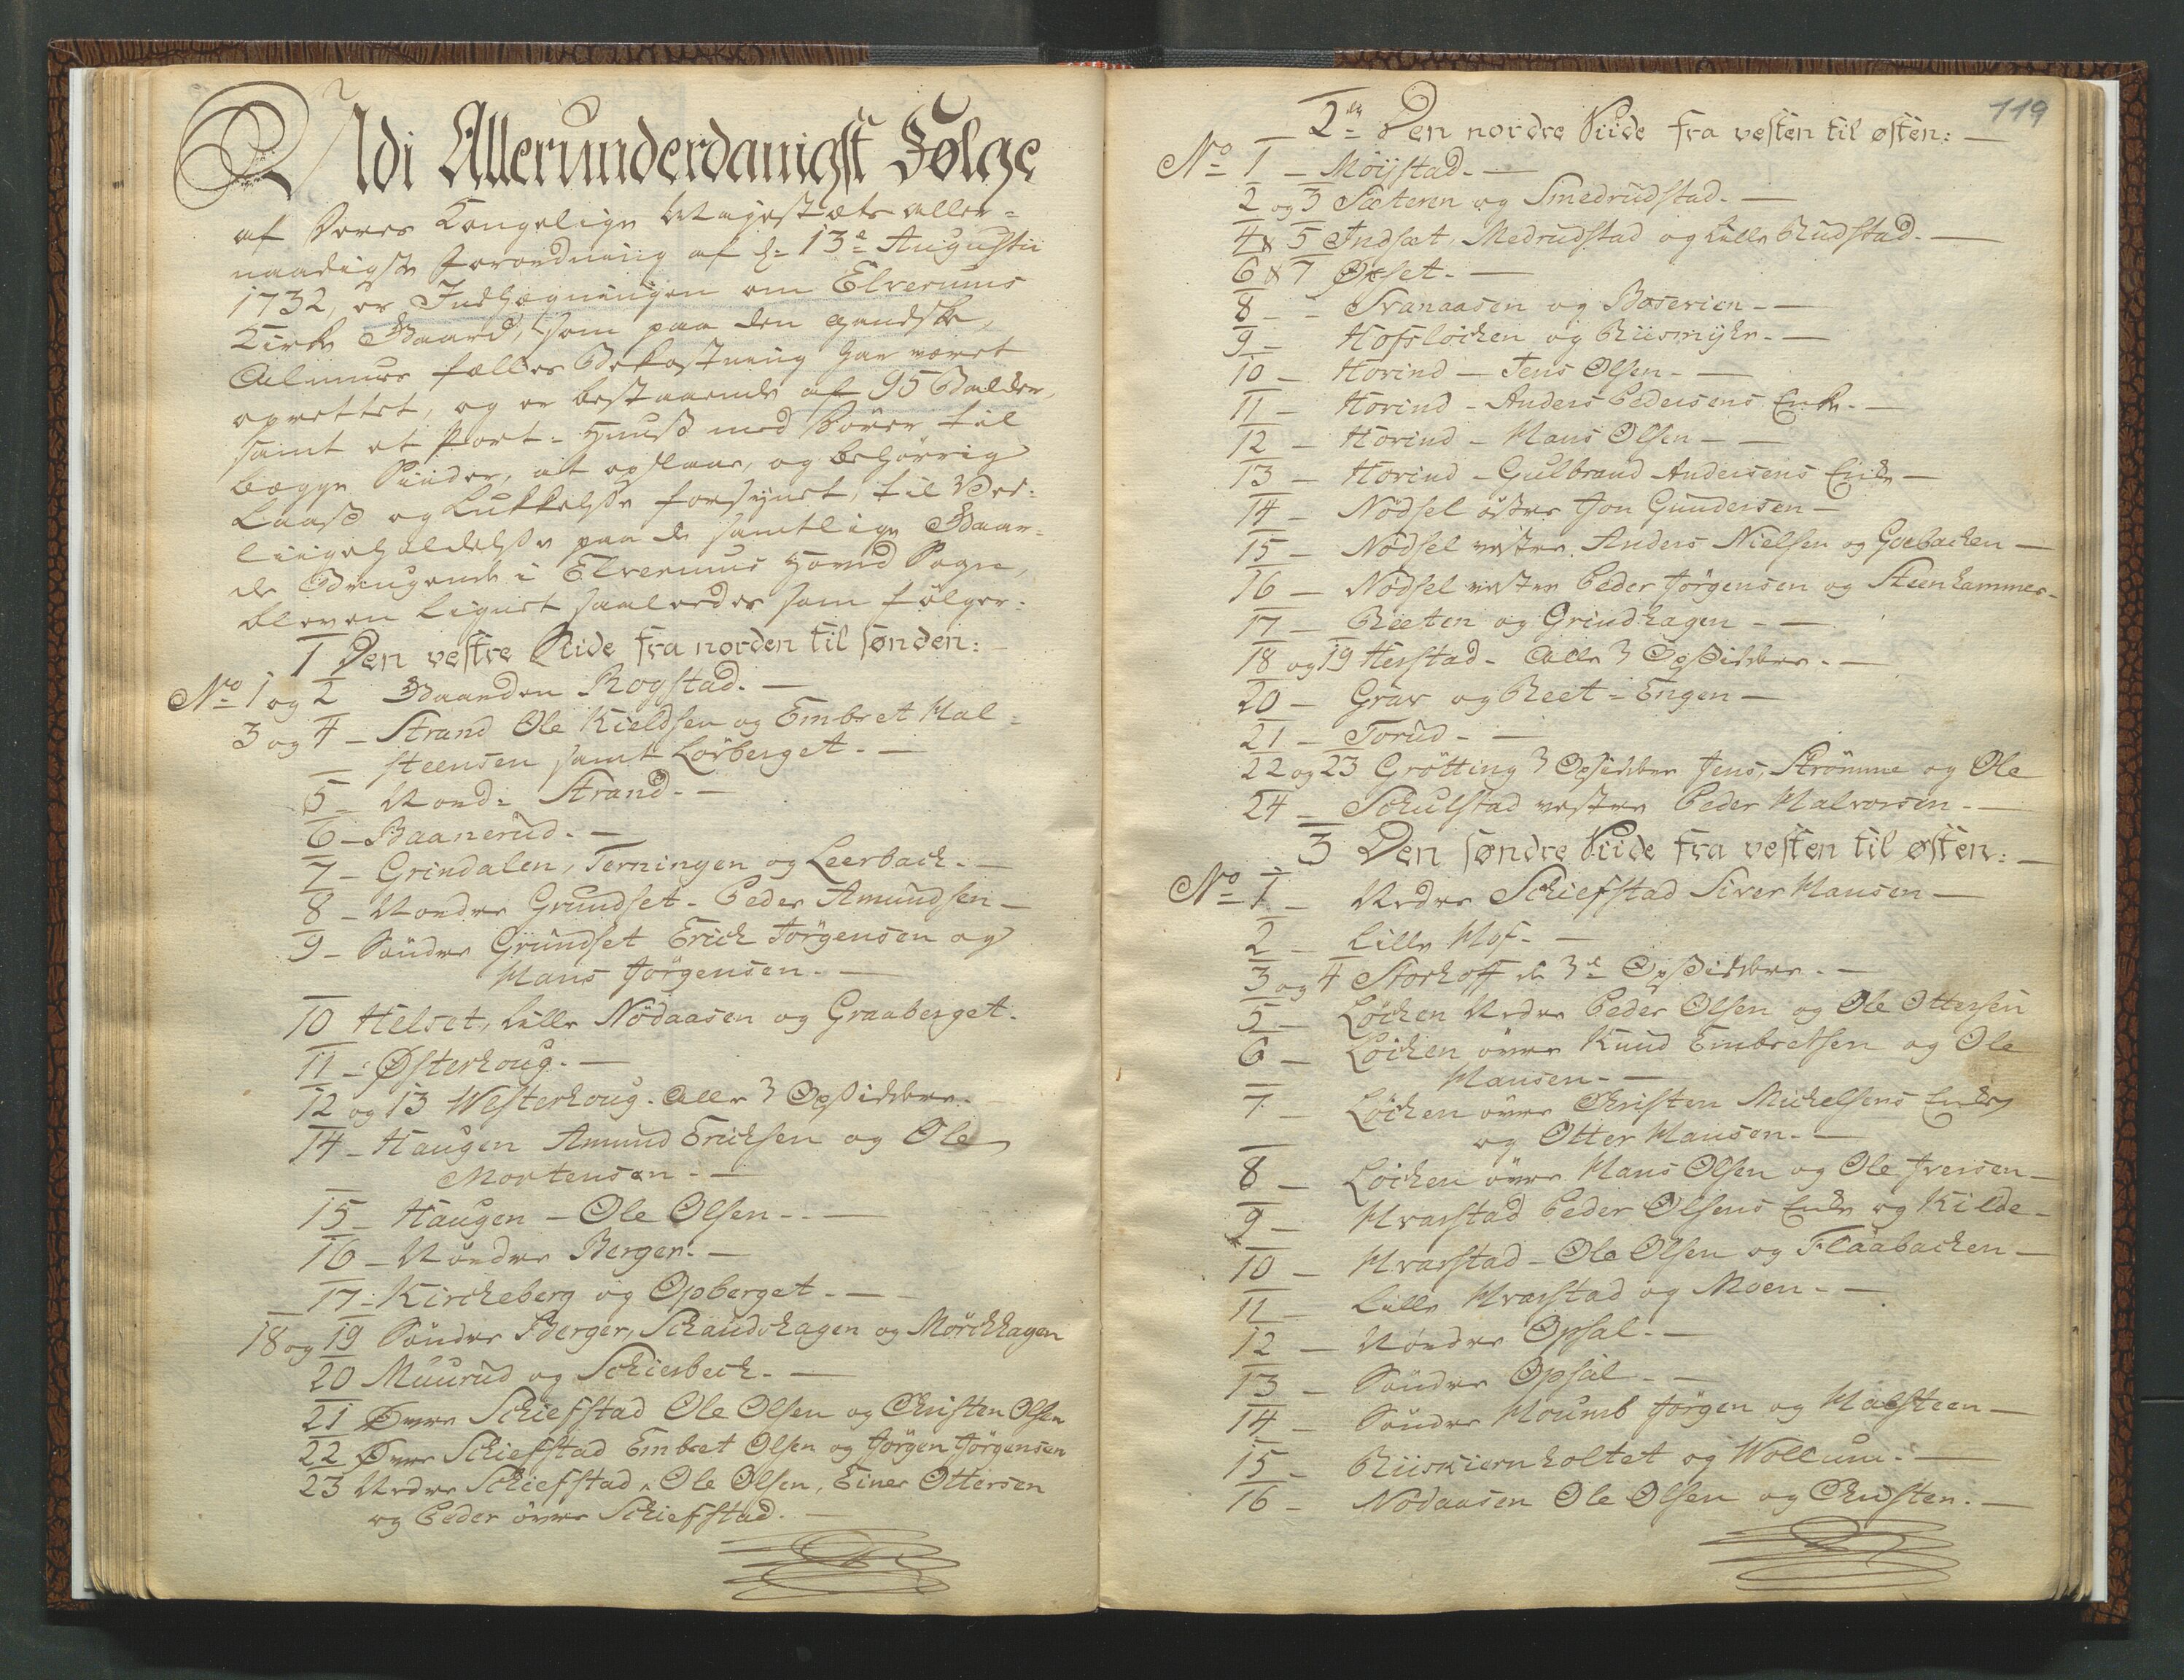 Udi Allerunderdanigst Følge
af Deres Kongelige Mayestæts aller-
naadigste Forordning af d: 13e Augustii
1732, er Indhægningen om Elverums
Kirke Gaard, som paa den gandske
Almues fælles Bekostning har været
oprettet, og er bestaaende af 95 Balder,
samt et Port-Huuss med Dörer til
begge Siider, alt opstaae, og behörrig
Laass og Lukkelsse forsynet, til Ved-
liigeholdelsse paa de samtlige Gaar-
de Brugende i Elverums Hoved Sogn,
bleven lignet saaledes som følger:
1 Den vestre Side fra norden til sønden:
No 1 og 2 Gaarden Rogstad.
3 og 4 - Strand Ole Kieldsen og Embret Hal-
steensen samt Lörberget.
5 - Nord: Strand.
6 - Baanerud.
7 - Grindalen, Terningen og Leerbach.
8 - Nordre Grundset - Peder Amundsen
9 - Söndre Grundset Erich Jörgensen og
Hans Jörgensen.
10 Helset, Lille Nödaasen og Graaberget.
11 - Østerhoug.
12 og 13 Westerhoug. Alle 3 Opsiddere.
14 - Haugen Amund Erichsen og Ole
Mortensen.
15 - Haugen - Ole Olsen
16 - Nördre Berger.
17 - Kircheberg og Opberget.
18 og 19 Söndre Berger, Schandshagen og Mörchhagen
20 Muurud og Schierbech.
21 Övre Schiefstad Ole Olsen og Christen Olsen
22 Övre Schiefstad Embret Olsen og Jörgen Jörgensen
23 Nedre Schiefstad, Ole Olsen, Einer Ottersen
og Peder övre Schiefstad.
119
2en Den nordre Siide fra vesten til østen:
No 1 - Möystad.
2 og 3 Sæteren og Smedrudstad.
4 & 5 Indsæt, Medrudstad og Lille Rudstad.
6 & 7 Øxset.
8 - Svanaasen og Baserien
9 - Hofslöchen og Riismyhr.
10 - Horind - Jens Olsen
11 - Horind - Anders Pedersens Enke.
12 - Horind - Hans Olsen
13 - Horind - Gulbrand Andersens Enke
14 - Nödsel östre Jon Gundersen
15 - Nödsel vestre. Anders Nielsen og Goebachen
16 - Nödsel vestre Peder Jörgensen og Steenhammer
17 - Reeten og Grindhagen
18 og 19 Herstad. Alle 3 Opsiddere.
20 - Grav og Reet-Engen
21 - Torud
22 og 23 Grötting 3 Opsiddere Jens, Strömme og Ole
24 - Schulstad vestre Peder Halvorsen.
3 Den søndre Siide fra vesten til østen:
No 1 - Nedre Schiefstad Siver Hansen
2 - Lille Hof.
3 og 4 Storhoff de 3de Opsiddere.
5 - Löchen Nedre Peder Olsen og Ole Ottersen
6 - Löchen övre Knud Embretsen og Ole
Hansen.
7 - Löchen övre Christen Michelsens Enke
og Otter Hansen.
8 - Löchen övre Hans Olsen og Ole Iversen
9 - Hvarstad Peder Olsens Enke og Kilde
10 - Hvarstad - Ole Olsen og Flaabachen
11 - Lille Hvarstad og Moen.
12 - Nördre Opsal.
13 - Söndre Opsal
14 - Söndre Houmb Jörgen og Halsteen
15 - Riiskiernholtet og Wollum.
16 - Nödaasen Ole Olsen og Christen.